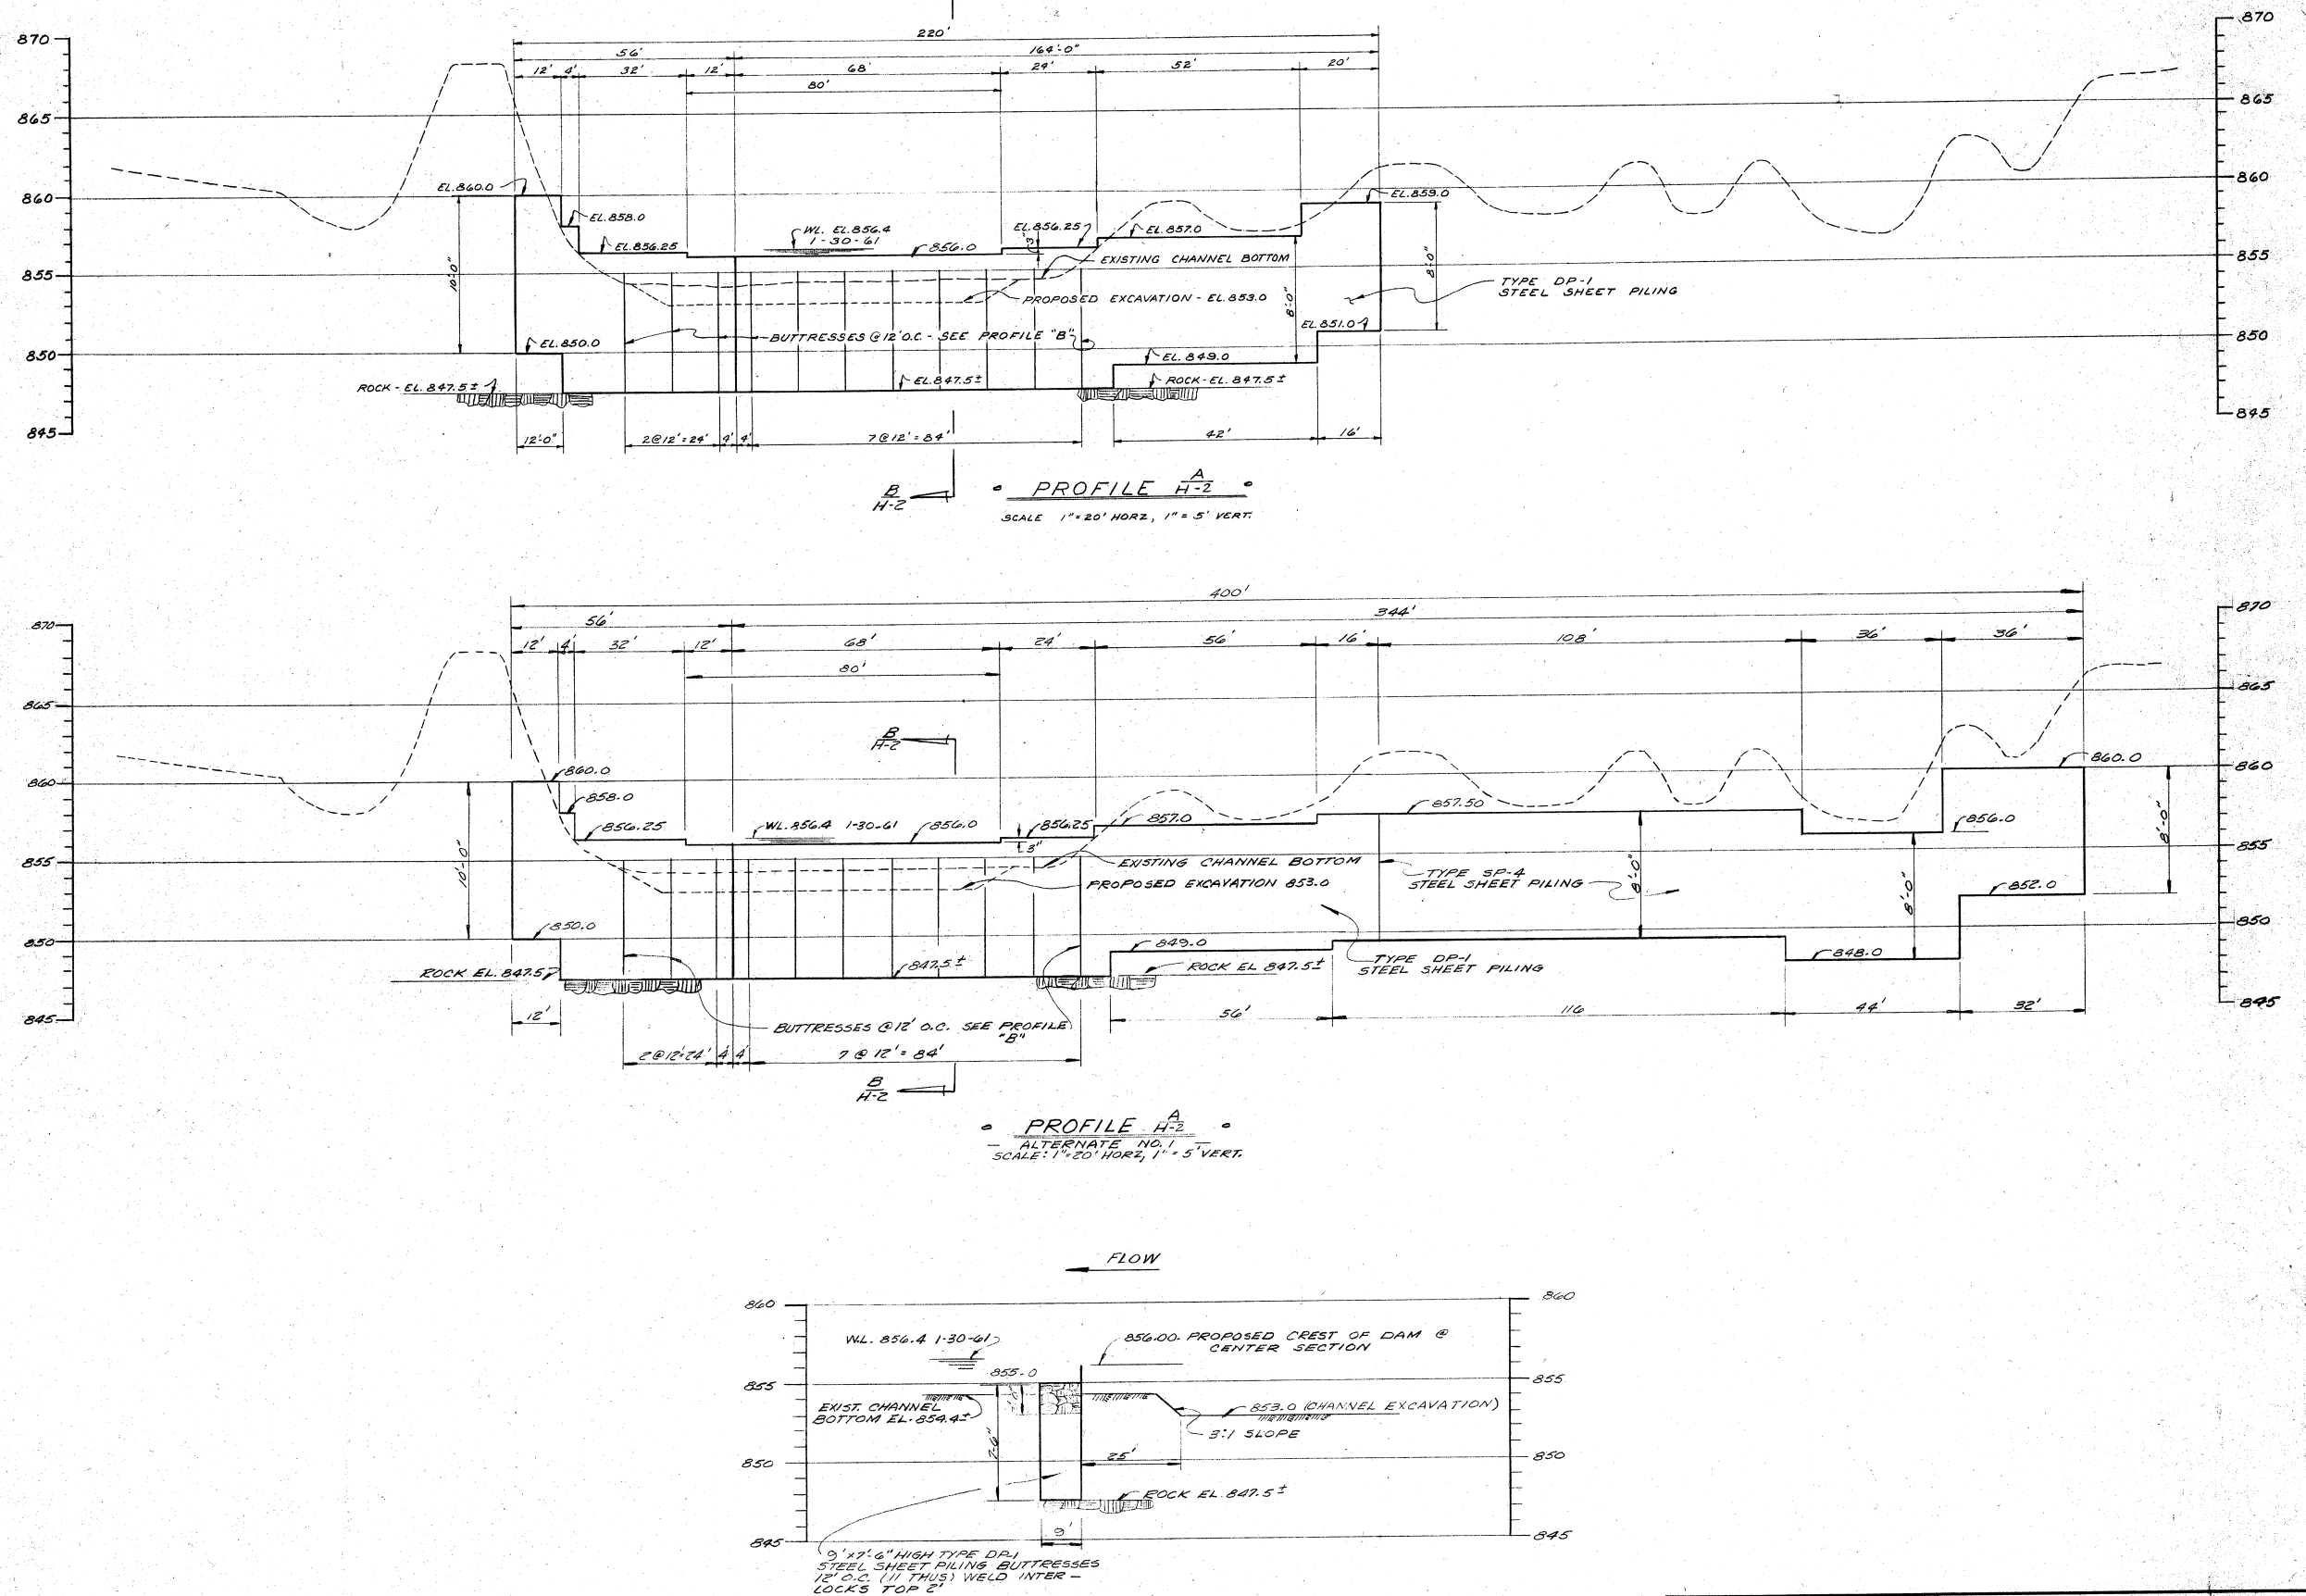 220'
56' 164'-0"
12' 4' 32' 12' 68' 24' 52' 20'
80'
870 870
865 865
860 860
855 855
850 850
845 845
EL.860.0
EL.858.0
EL.856.25
WL. EL.856.4
1-30-61
856.0
EL.856.25
3"
EL.857.0
EL.859.0
EXISTING CHANNEL BOTTOM
PROPOSED EXCAVATION - EL.853.0
TYPE DP-1
STEEL SHEET PILING
10'-0"
8'-0"
8'-0"
EL.851.0
BUTTRESSES @ 12' O.C. - SEE PROFILE "B"
EL.850.0
EL. 849.0
ROCK - EL. 847.5±
EL.847.5±
ROCK - EL. 847.5±
12'-0" 2@12'=24' 4' 4' 7@12'=84' 42' 16'
B
H-2
PROFILE A
H-2
SCALE 1"=20' HORZ, 1"=5' VERT.
400'
56' 344'
12' 4' 32' 12' 68' 24' 56' 16' 108' 36' 36'
80'
870 870
865 865
860 860
855 855
850 850
845 845
B
H-2
860.0
858.0
856.25
WL.856.4 1-30-61
856.0
856.25
3"
857.0
857.50
856.0
860.0
EXISTING CHANNEL BOTTOM
PROPOSED EXCAVATION 853.0
TYPE SP-4
STEEL SHEET PILING
10'-0"
8'-0"
8'-0"
8'-0"
852.0
850.0
849.0
848.0
ROCK EL.847.5
847.5±
ROCK EL 847.5±
TYPE DP-1
STEEL SHEET PILING
12' 56' 116 44' 32'
BUTTRESSES @ 12' O.C. SEE PROFILE
"B"
2@12'=24' 4' 4' 7 @ 12' = 84'
B
H-2
PROFILE A
H-2
- ALTERNATE NO. 1 -
SCALE: 1"=20' HORZ, 1"=5' VERT.
FLOW
860 860
855 855
850 850
845 845
W.L. 856.4 1-30-61
856.00 PROPOSED CREST OF DAM @
CENTER SECTION
855.0
EXIST. CHANNEL
BOTTOM EL. 854.4±
853.0 (CHANNEL EXCAVATION)
3:1 SLOPE
7'-6"
25'
ROCK EL. 847.5±
9'
9'x7'-6" HIGH TYPE DP-1
STEEL SHEET PILING BUTTRESSES
12' O.C. (11 THUS) WELD INTER-
LOCKS TOP 2'